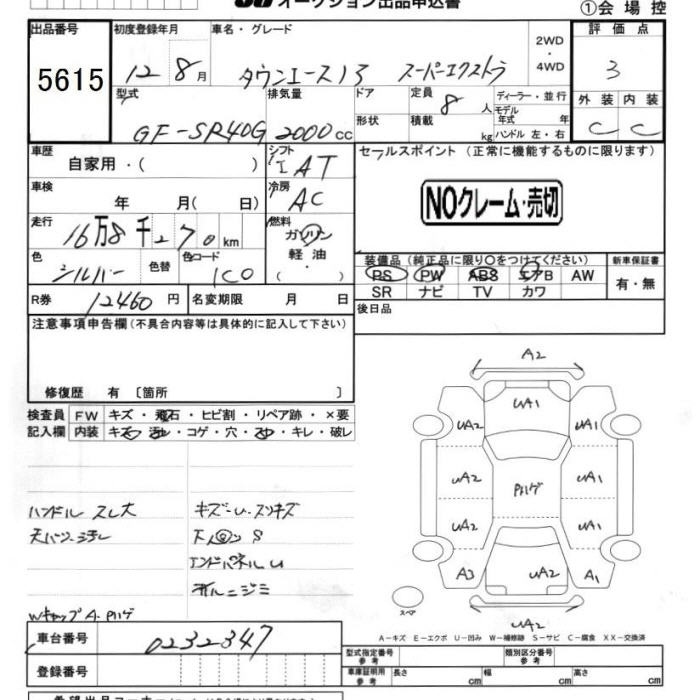 オークション出品申込書
①会場控
出品番号
5615
初度登録年月
12 8月
車名・グレード
タウンエース13 スーパーエクストラ
2WD
・
4WD
評価点
3
型式
GF-SR40G
排気量
2000cc
ドア
形状
定員
8人
積載
kg
ディーラー・並行
モデル
年式 年
ハンドル 左・右
外装 内装
C C
車歴
自家用・( )
シフト
IAT
セールスポイント (正常に機能するものに限ります)
NOクレーム・売切
車検
年 月( 日)
冷房
AC
走行
16万8千270km
燃料
ガソリン
軽油
・
( )
色
シルバー
色替
色コード
1C0
装備品(純正品に限り○をつけてください)
PS PW ABS エアB AW
SR ナビ TV カワ
新車保証書
有・無
R券
12460円
名変期限 月 日
後日品
注意事項申告欄(不具合内容等は具体的に記入して下さい)
修復歴 有 〔箇所 〕
検査員
記入欄
FW キズ・飛石・ヒビ割・リペア跡・×要
内装 キズ・汚れ・コゲ・穴・スレ・キレ・破レ
ハンドル スレ大
キズ・U・スリキズ
S
エンドパネルU
Wキャップ A・Pハゲ
A2
UA1
UA1 UA1
UA2 Pハゲ UA1
UA2 UA1
A3 UA2 A1
スペア
UA2
A-キズ E-エクボ U-凹み W-補修跡 S-サビ C-腐食 XX-交換済
車台番号
0232347
登録番号
型式指定番号
参考
類別区分番号
参考
車庫証明用
参考
長さ cm 幅 cm 高さ cm